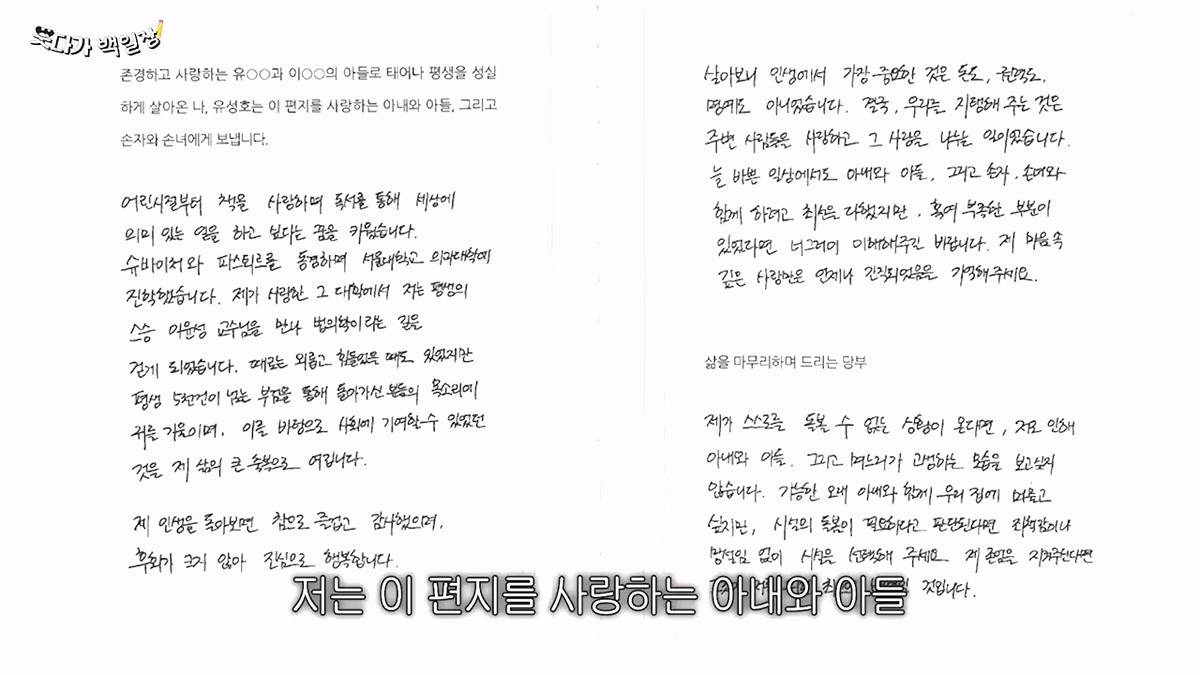 뜻다가 백일장
존경하고 사랑하는 유○○과 이○○의 아들로 태어나 평생을 성실
하게 살아온 나, 유성호는 이 편지를 사랑하는 아내와 아들, 그리고
손자와 손녀에게 보냅니다.
어린시절부터 책을 사랑하며 독서를 통해 세상에
의미 있는 일을 하고 싶다는 꿈을 키웠습니다.
슈바이처와 파스퇴르를 동경하며 서울대학교 의과대학에
진학했습니다. 제가 사랑한 그 대학에서 저는 평생의
스승 이윤성 교수님을 만나 법의학이라는 길을
걷게 되었습니다. 때로는 외롭고 힘들었을 때도 있었지만
평생 5천건이 넘는 부검을 통해 돌아가신 분들의 목소리에
귀를 기울이며, 이를 바탕으로 사회에 기여할 수 있었던
것을 제 삶의 큰 축복으로 여깁니다.
제 인생을 돌아보면 참으로 즐겁고 감사했으며,
후회가 크지 않아 진심으로 행복합니다.
살아보니 인생에서 가장 중요한 것은 돈도, 권력도,
명예도 아니었습니다. 결국, 우리를 지탱해 주는 것은
주변 사람들을 사랑하고 그 사랑을 나누는 일이었습니다.
늘 바쁜 일상에서도 아내와 아들, 그리고 손자, 손녀와
함께 하려고 최선을 다했지만, 혹여 부족한 부분이
있었다면 너그러이 이해해주길 바랍니다. 제 마음속
깊은 사랑만은 언제나 간직되었음을 기억해주세요.
삶을 마무리하며 드리는 당부
제가 스스로를 돌볼 수 없는 상황이 온다면, 저로 인해
아내와 아들, 그리고 며느리가 고생하는 모습을 보고싶지
않습니다. 가능한 오래 아내와 함께 우리 집에 머물고
싶지만, 시설의 돌봄이 필요하다고 판단된다면 죄책감이나
망설임 없이 시설을 선택해 주세요. 제 존엄을 지켜주신다면
것입니다.
저는 이 편지를 사랑하는 아내와 아들